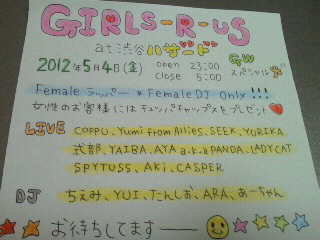 GIRLS-R-US
at 渋谷 ハザード
GW
スペシャル
2012年5月4日(金)
open 23:00
close 5:00
Female ラッパー * Female DJ Only!!!
女性のお客様にはチュッパチャップスをプレゼント
LIVE
COPPU、Yumi from Allies、SEEK、YURIKA
式部、YAIBA、AYA a.k.a PANDA、LADY CAT
SPYTUSS、AKi、CASPER
DJ
ちえみ、YUI、たんしお、ARA、あーちゃん
お待ちしてます